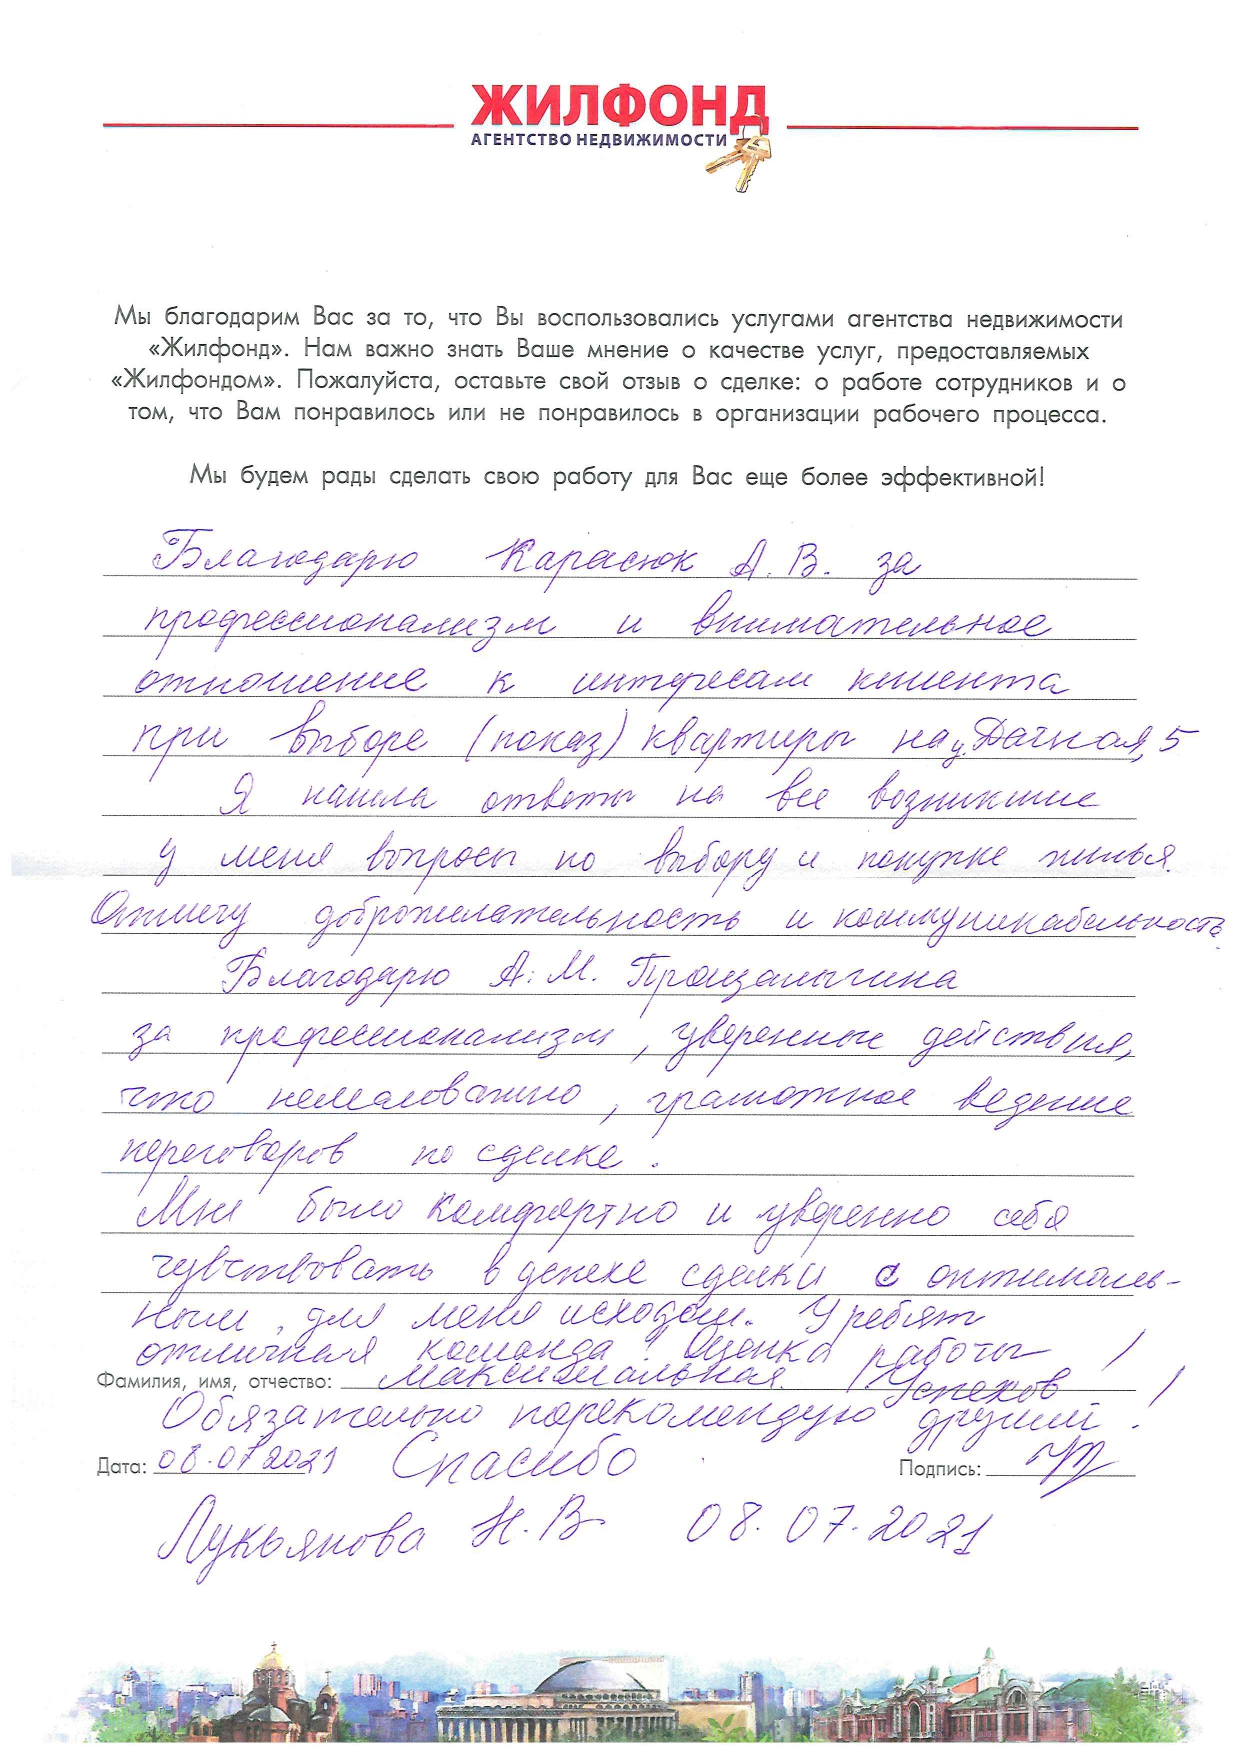 ЖИЛФОНД
АГЕНТСТВО НЕДВИЖИМОСТИ
Мы благодарим Вас за то, что Вы воспользовались услугами агентства недвижимости
«Жилфонд». Нам важно знать Ваше мнение о качестве услуг, предоставляемых
«Жилфондом». Пожалуйста, оставьте свой отзыв о сделке: о работе сотрудников и о
том, что Вам понравилось или не понравилось в организации рабочего процесса.
Мы будем рады сделать свою работу для Вас еще более эффективной!
Благодарю Карасюк А. В. за
профессионализм и внимательное
отношение к интересам клиента
при выборе (показ) квартиры на у. Дачная, 5
Я нашла ответы на все возникшие
у меня вопросы по выбору и покупке жилья.
Отмечу доброжелательность и коммуникабельность
Благодарю А. М.
за профессионализм, уверенные действия,
что немаловажно, грамотное ведение
переговоров по сделке.
Мне было комфортно и уверенно себя
чувствовать в сделки с оптималь-
ным для меня исходом. У ребят
отличная команда! Оценка работы
Фамилия, имя, отчество: максимальная. Успехов!
Обязательно порекомендую друзьям!
Дата: 08.07.2021 Спасибо Подпись:
Лукьянова Н. В. 08.07.2021